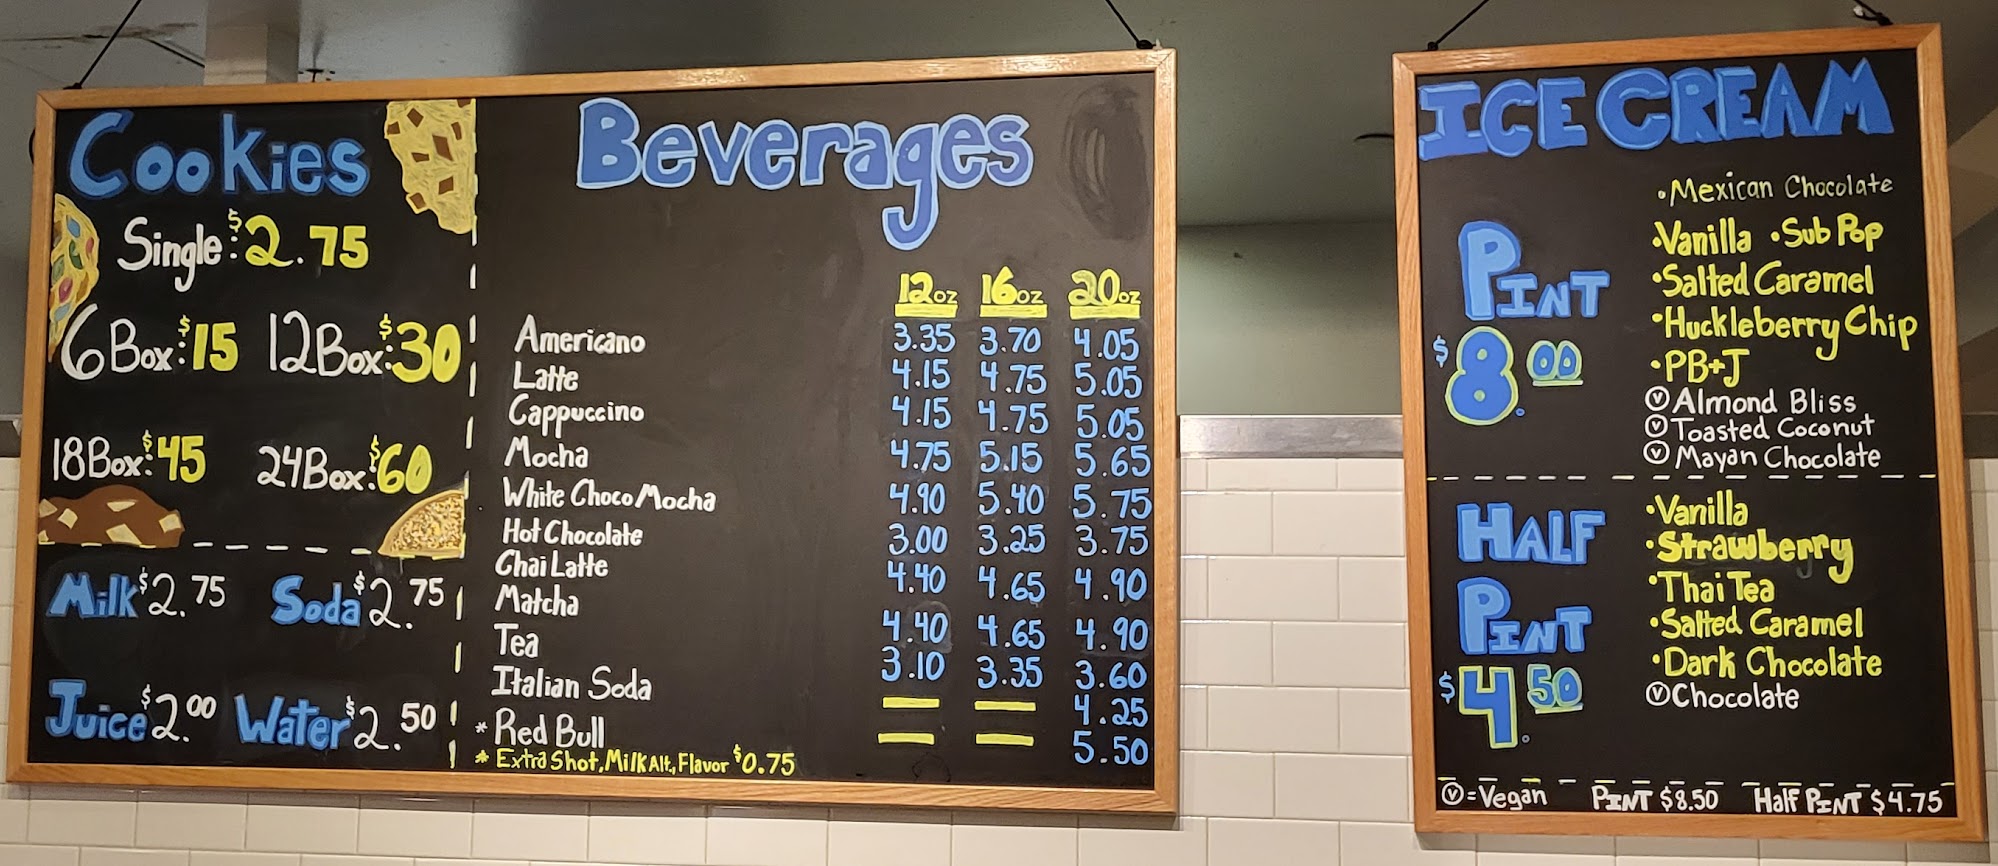 Cookies
Single: $2.75
6 Box: $15 12 Box: $30
18 Box: $45 24 Box: $60
Milk $2.75 Soda $2.75
Juice $2.00 Water $2.50
Beverages
12oz 16oz 20oz
Americano 3.35 3.70 4.05
Latte 4.15 4.75 5.05
Cappuccino 4.15 4.75 5.05
Mocha 4.75 5.15 5.65
White Choco Mocha 4.90 5.40 5.75
Hot Chocolate 3.00 3.25 3.75
Chai Latte 4.40 4.65 4.90
Matcha 4.40 4.65 4.90
Tea 3.10 3.35 3.60
Italian Soda 4.25
* Red Bull 5.50
* Extra Shot, Milk Alt., Flavor $0.75
ICE CREAM
PINT
$8.00
• Mexican Chocolate
• Vanilla • Sub Pop
• Salted Caramel
• Huckleberry Chip
• PB+J
Ⓥ Almond Bliss
Ⓥ Toasted Coconut
Ⓥ Mayan Chocolate
HALF
PINT
$4.50
• Vanilla
• Strawberry
• Thai Tea
• Salted Caramel
• Dark Chocolate
Ⓥ Chocolate
Ⓥ = Vegan PINT $8.50 Half PINT $4.75